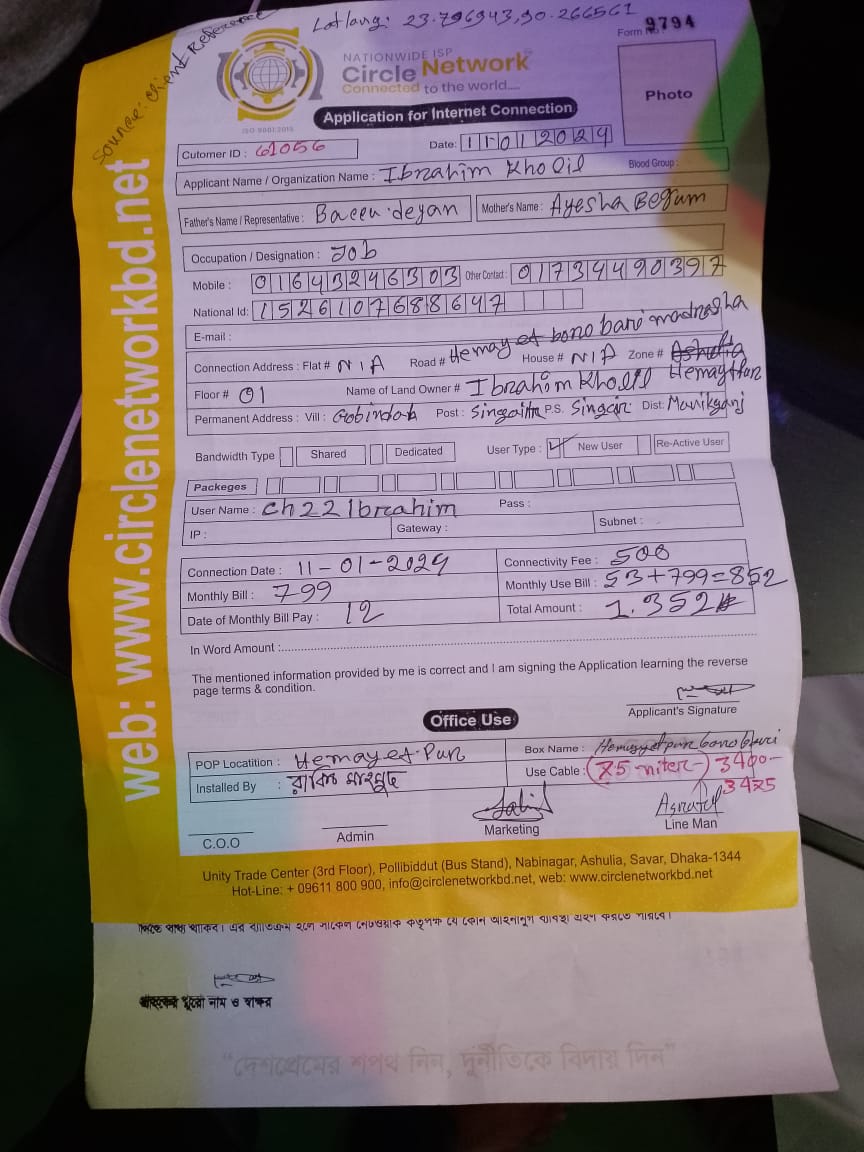 Source: Client Reference
Latlang: 23.796943,90.266561
Form No: 9794
NATIONWIDE ISP
Circle Network
Connected to the world....
ISO 9001:2015
Application for Internet Connection
Photo
Cutomer ID : 61056
Date: 11012024
Applicant Name / Organization Name : Ibrahim Kholil
Blood Group :
Father's Name / Representative :
Mother's Name : Ayesha Begum
Occupation / Designation : Job
Mobile : 01643246303 Other Contact : 01734490397
National Id: 1526107688647
E-mail :
Connection Address : Flat # N/A Road # Hemayet bono bari madrasha House # N/A Zone #
Floor # 01 Name of Land Owner # Ibrahim Kholil
Permanent Address : Vill : Gobindah Post : P.S. Singair Dist: Manikganj
Bandwidth Type Shared Dedicated User Type : New User Re-Active User
Packeges
User Name : Ch221brahim Pass :
IP : Gateway : Subnet :
Connection Date : 11-01-2024 Connectivity Fee : 500
Monthly Bill : 799 Monthly Use Bill : 53+799=852
Date of Monthly Bill Pay : 12 Total Amount : 1.352
In Word Amount :
The mentioned information provided by me is correct and I am signing the Application learning the reverse
page terms & condition.
Applicant's Signature
Office Use
POP Locatition : Hemayet-Pur Box Name :
Installed By : রাকিব মাহমুদ Use Cable : (75 miter) 3400-
3475
C.O.O
Admin
Marketing
Line Man
Unity Trade Center (3rd Floor), Pollibiddut (Bus Stand), Nabinagar, Ashulia, Savar, Dhaka-1344
Hot-Line: + 09611 800 900, info@circlenetworkbd.net, web: www.circlenetworkbd.net
web: www.circlenetworkbd.net
"দেশপ্রেমের শপথ নিন, দূর্নীতিকে বিদায় দিন"